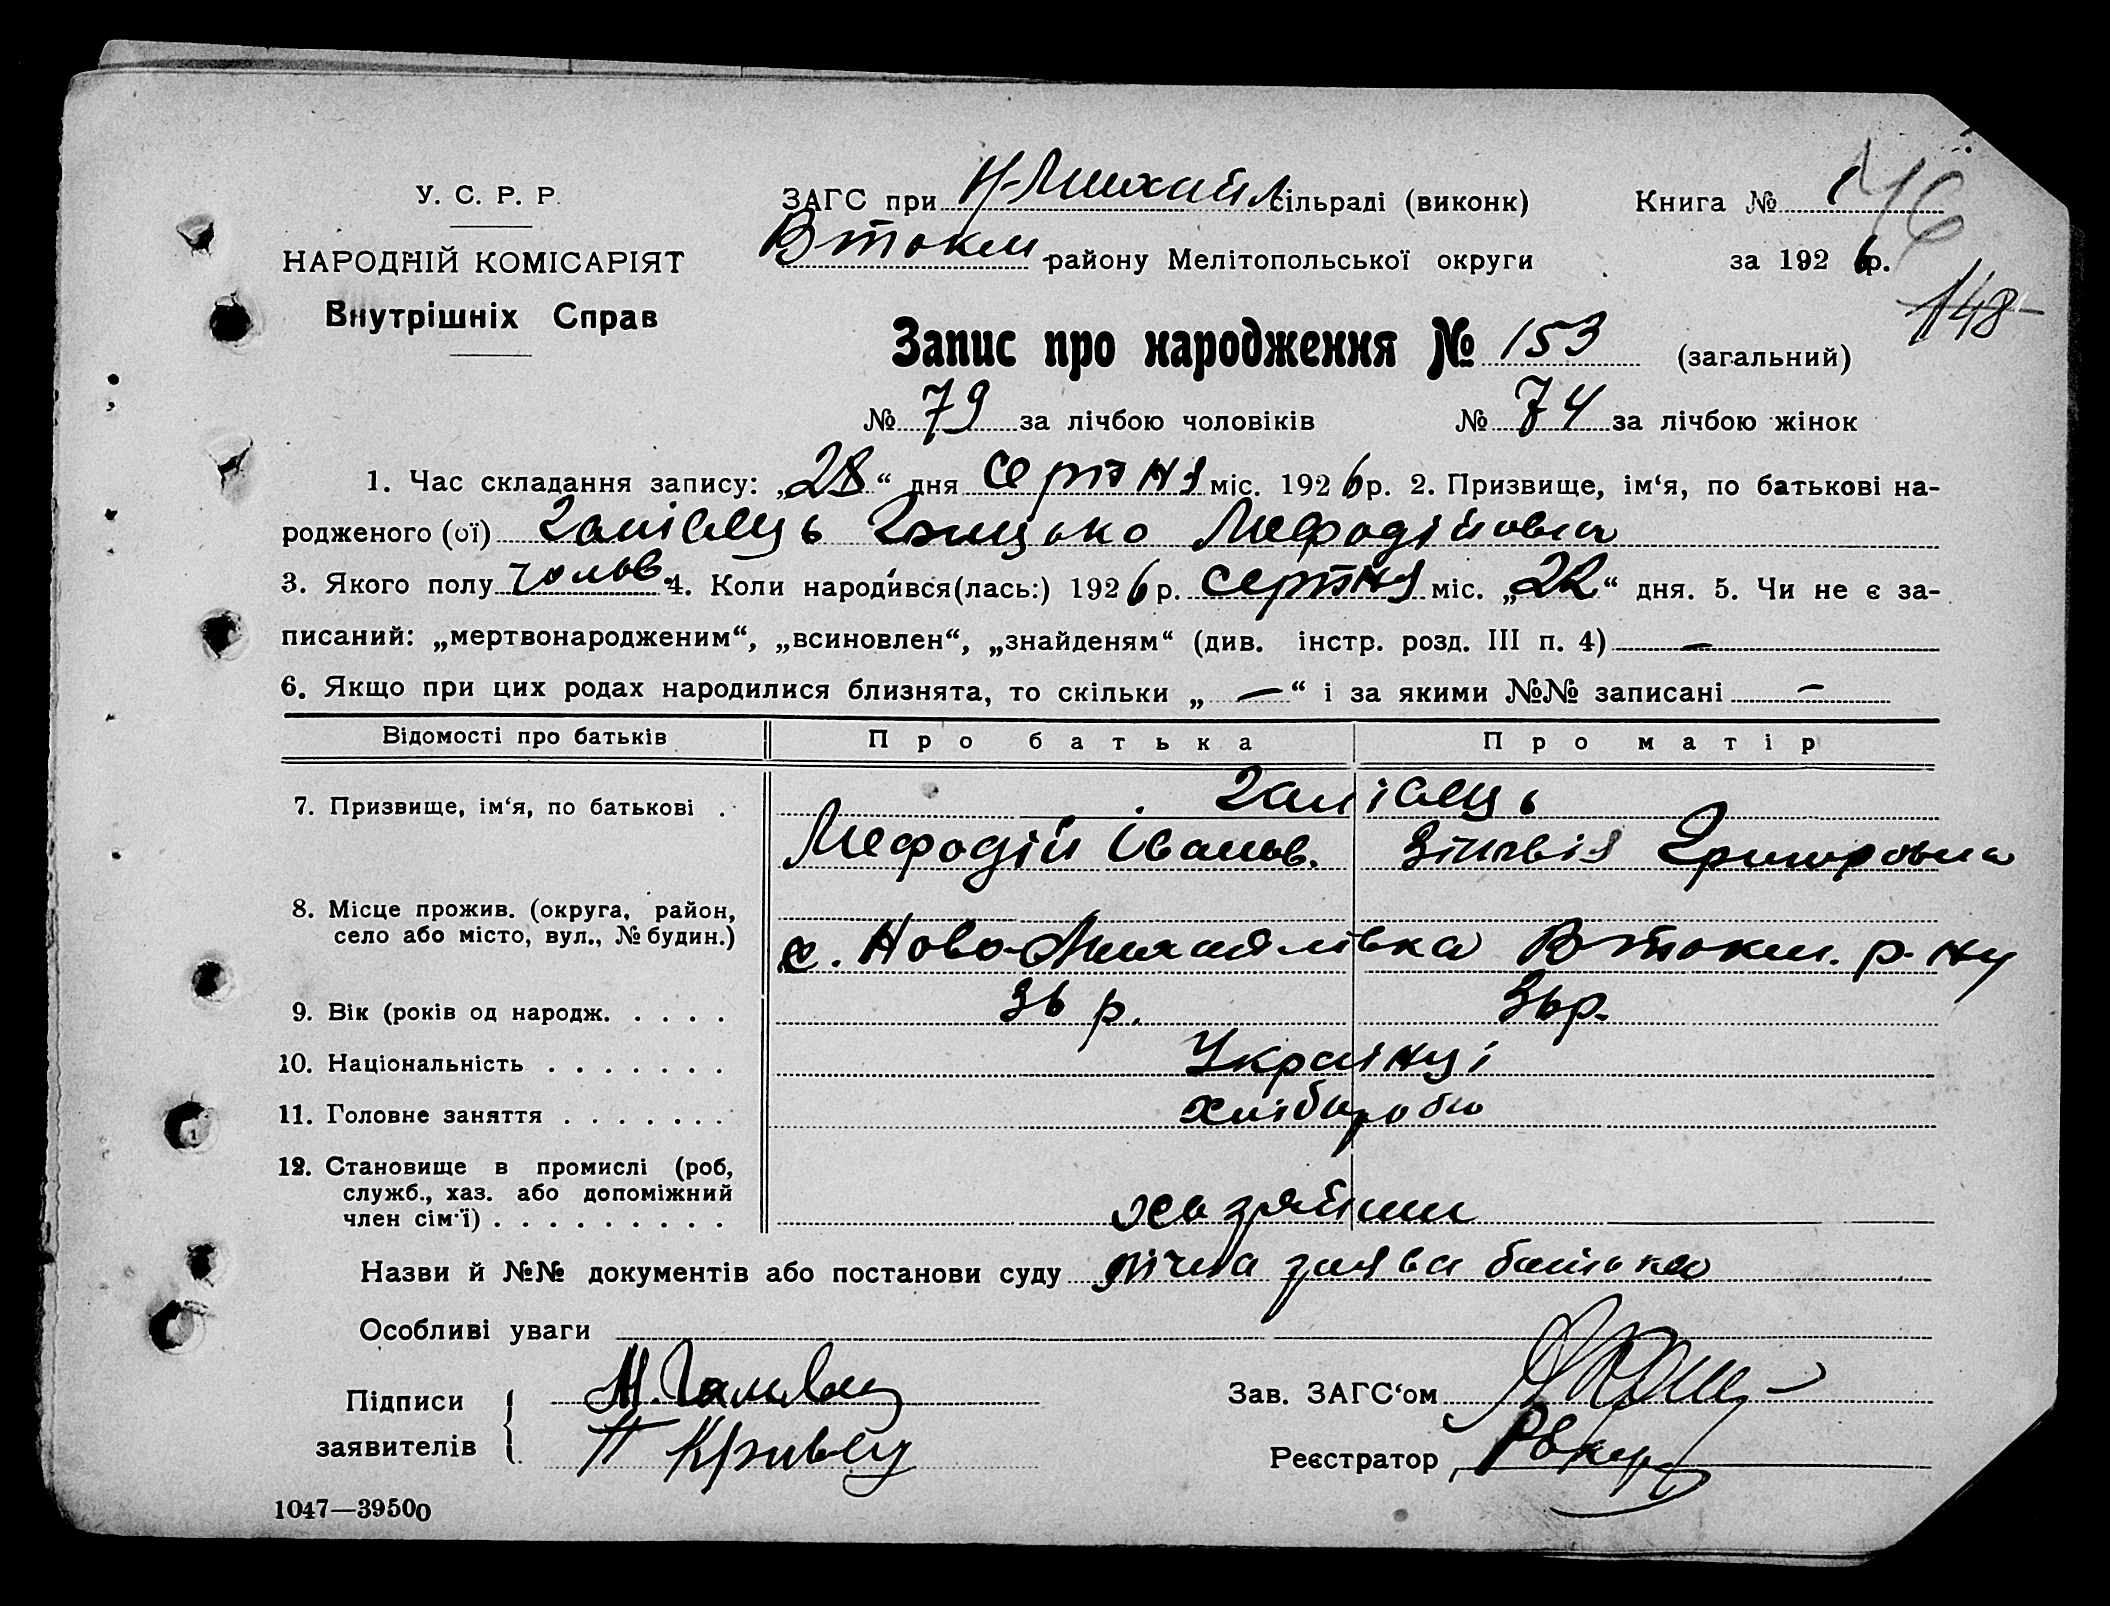 У. С. Р. Р.
НАРОДНІЙ КОМІСАРІЯТ
Внутрішніх Справ
ЗАГС при Н-Михайл сільраді (виконк)
Втокм району Мелітопольської округи
Книга № 1
46
за 1926 р.
148
Запис про народження № 153 (загальний)
№ 79 за лічбою чоловіків № 74 за лічбою жінок
1. Час складання запису: „28“ дня серпня міс. 1926 р. 2. Призвище, ім‘я, по батькові на-
родженого (ої) Грицько Мефодійович
3. Якого полу чолов. 4. Коли народився(лась:) 1926 р. серпня міс. „22“ дня. 5. Чи не є за-
писаний: „мертвонародженим“, „всиновлен“, „знайденям“ (див. інстр. розд. III п. 4) —
6. Якщо при цих родах народилися близнята, то скільки „—“ і за якими №№ записані —
Відомості про батьків Про батька Про матір
7. Призвище, ім‘я, по батькові .
Мефодій Іванов. Зіновія Григоровна
8. Місце прожив. (округа, район,
село або місто, вул., № будин.)
с. Ново-Михайлівка Втокм. р-ну
9. Вік (років од народж. . . . . 36 р. 36 р.
10. Національність . . . . . . . Українці
11. Головне заняття . . . . . . . хлібороби
12. Становище в промислі (роб,
служб., хаз. або допоміжний
член сім‘ї) . . . . . . . . . хазяйни
Назви й №№ документів або постанови суду річна заява батька
Особливі уваги
Підписи
заявителів
Зав. ЗАГС‘ом
Реєстратор
1047—39500